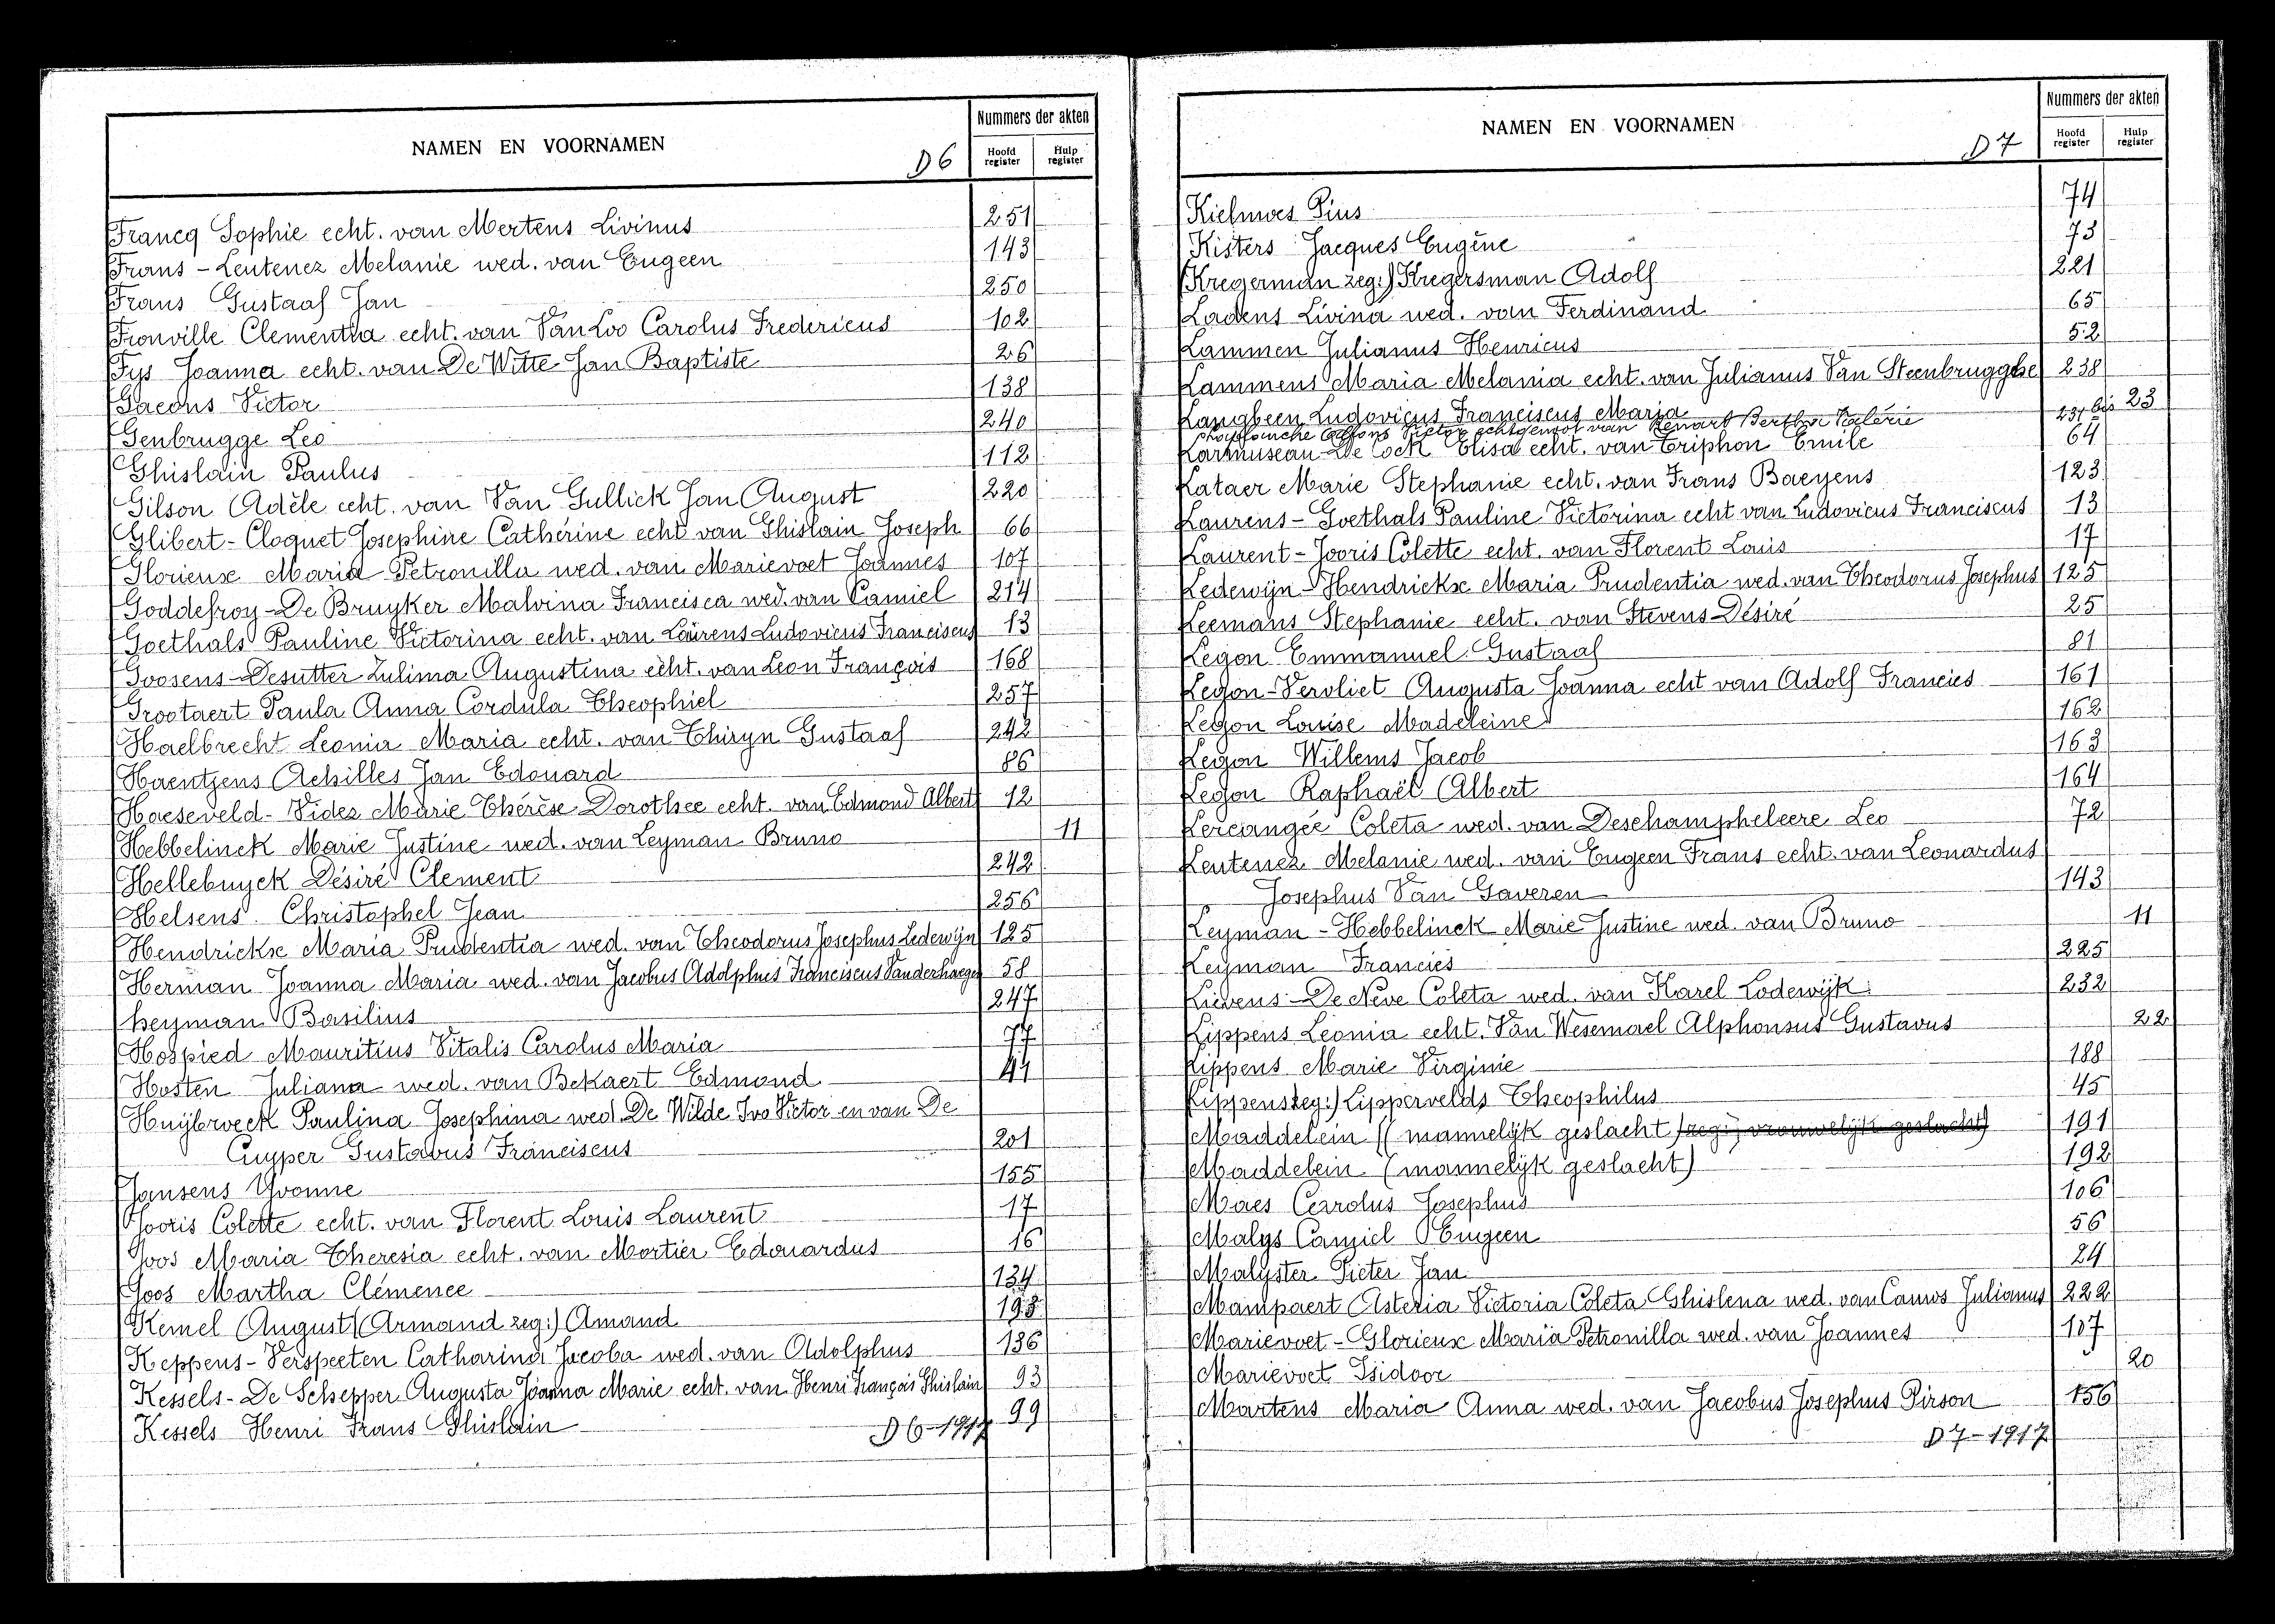 NAMEN EN VOORNAMEN D6
Nummers der akten
Hoofd register
Hulp register
Francq Sophie echt. van Mertens Livinus 251
Frans - Leutenez Melanie wed. van Eugeen 143
Frans Gustaaf Jan 250
Fronville Clementia echt. van Van Loo Carolus Fredericus 102
Fys Joanna echt. van De Witte Jan Baptiste 26
Gaeons Victor 138
Genbrugge Leo 240
Ghislain Paulus 112
Gilson Adèle echt. van Van Gullick Jan August 220
Glibert - Cloquet Josephine Cathérine echt van Ghislain Joseph 66
Glorieux Maria Petronilla wed. van Marievoet Joannes 107
Goddefroy - De Bruyker Malvina Francisca wed. van Camiel 214
Goethals Pauline Victorina echt. van Laurens Ludovicus Franciscus 13
Goosens - Desutter Zulima Augustina echt. van Leon François 168
Grootaert Paula Anna Cordula Theophiel 257
Haelbrecht Leonia Maria echt. van Thiryn Gustaaf 242
Haentjens Achilles Jan Edouard 86
Haeseveld - Videz Marie Thérèse Dorothee echt. van Edmond Albert 12
Hebbelinck Marie Justine wed. van Leyman Bruno 11
Hellebuyck Désiré Clement 242
Helsens Christophel Jean 256
Hendrickx Maria Prudentia wed. van Theodorus Josephus Ledewijn 125
Herman Joanna Maria wed. van Jacobus Adolphus Franciscus Vanderhaegen 58
heyman Basilius 247
Hospied Mauritius Vitalis Carolus Maria 77
Hosten Juliana wed. van Bekaert Edmond 41
Huÿbrveck Paulina Josephina wed. De Wilde Ivo Victor en van De
Cuyper Gustavus Franciscus 201
Jansens Yvonne 155
Jooris Colette echt. van Florent Louis Laurent 17
Joos Maria Theresia echt. van Mortier Edouardus 16
Joos Martha Clémence 134
Kemel August (Armand zeg:) Amand 193
Keppens - Verspeeten Catharina Jacoba wed. van Adolphus 136
Kessels - De Schepper Augusta Joanna Marie echt. van Henri François Ghislain 93
Kessels Henri Frans Ghislain 99
D6-1917
NAMEN EN VOORNAMEN D7
Nummers der akten
Hoofd register
Hulp register
Kielmoes Pius 74
Kisters Jacques Eugène 73
(Kregerman zeg:) Kregersman Adolf 221
Ladens Livina wed. van Ferdinand 65
Lammen Julianus Henricus 52
Lammens Maria Melania echt. van Julianus Van Steenbrugghe 238
Langbeen Ludovicus Franciscus Maria 23
Alfons Victor echtgenoot van Renart Bertha Valérie 231 bis
Larmuseau - De Cock Elisa echt. van Triphon Emile 64
Lataer Marie Stephanie echt. van Frans Baeyens 123
Laurens - Goethals Pauline Victorina echt van Ludovicus Franciscus 13
Laurent - Jooris Colette echt. van Florent Louis 17
Ledewijn - Hendrickx Maria Prudentia wed. van Theodorus Josephus 125
Leemans Stephanie echt. van Stevens Désiré 25
Legon Emmanuel Gustaaf 81
Legon - Vervliet Augusta Joanna echt van Adolf Francies 161
Legon Louise Madeleine 162
Legon Willems Jacob 163
Legon Raphaël Albert 164
Lercangée Coleta wed. van Deschampheleere Leo 72
Leutenez Melanie wed. van Eugeen Frans echt. van Leonardus
Josephus Van Gaveren 143
Leyman - Hebbelinck Marie Justine wed. van Bruno 11
Leyman Francies 225
Lievens - De Neve Coleta wed. van Karel Lodewijk 232
Lippens Leonia echt. Van Wesemael Alphonsus Gustavus 22
Lippens Marie Virginie 188
Lippens zeg:) Lippervelds Theophilus 45
Maddelein (mannelijk geslacht) zeg:, vrouwelijk geslacht) 191
Maddelein (mannelijk geslacht) 192
Maes Carolus Josephus 106
Malys Camiel Eugeen 56
Malyster Pieter Jan 24
Mampaert Asteria Victoria Coleta Ghislena wed. van Cauwo Julianus 222
Marievoet - Glorieux Maria Petronilla wed. van Joannes 107
Marievoet Isidoor 20
Martens Maria Anna wed. van Jacobus Josephus Pirson 156
D7-1917